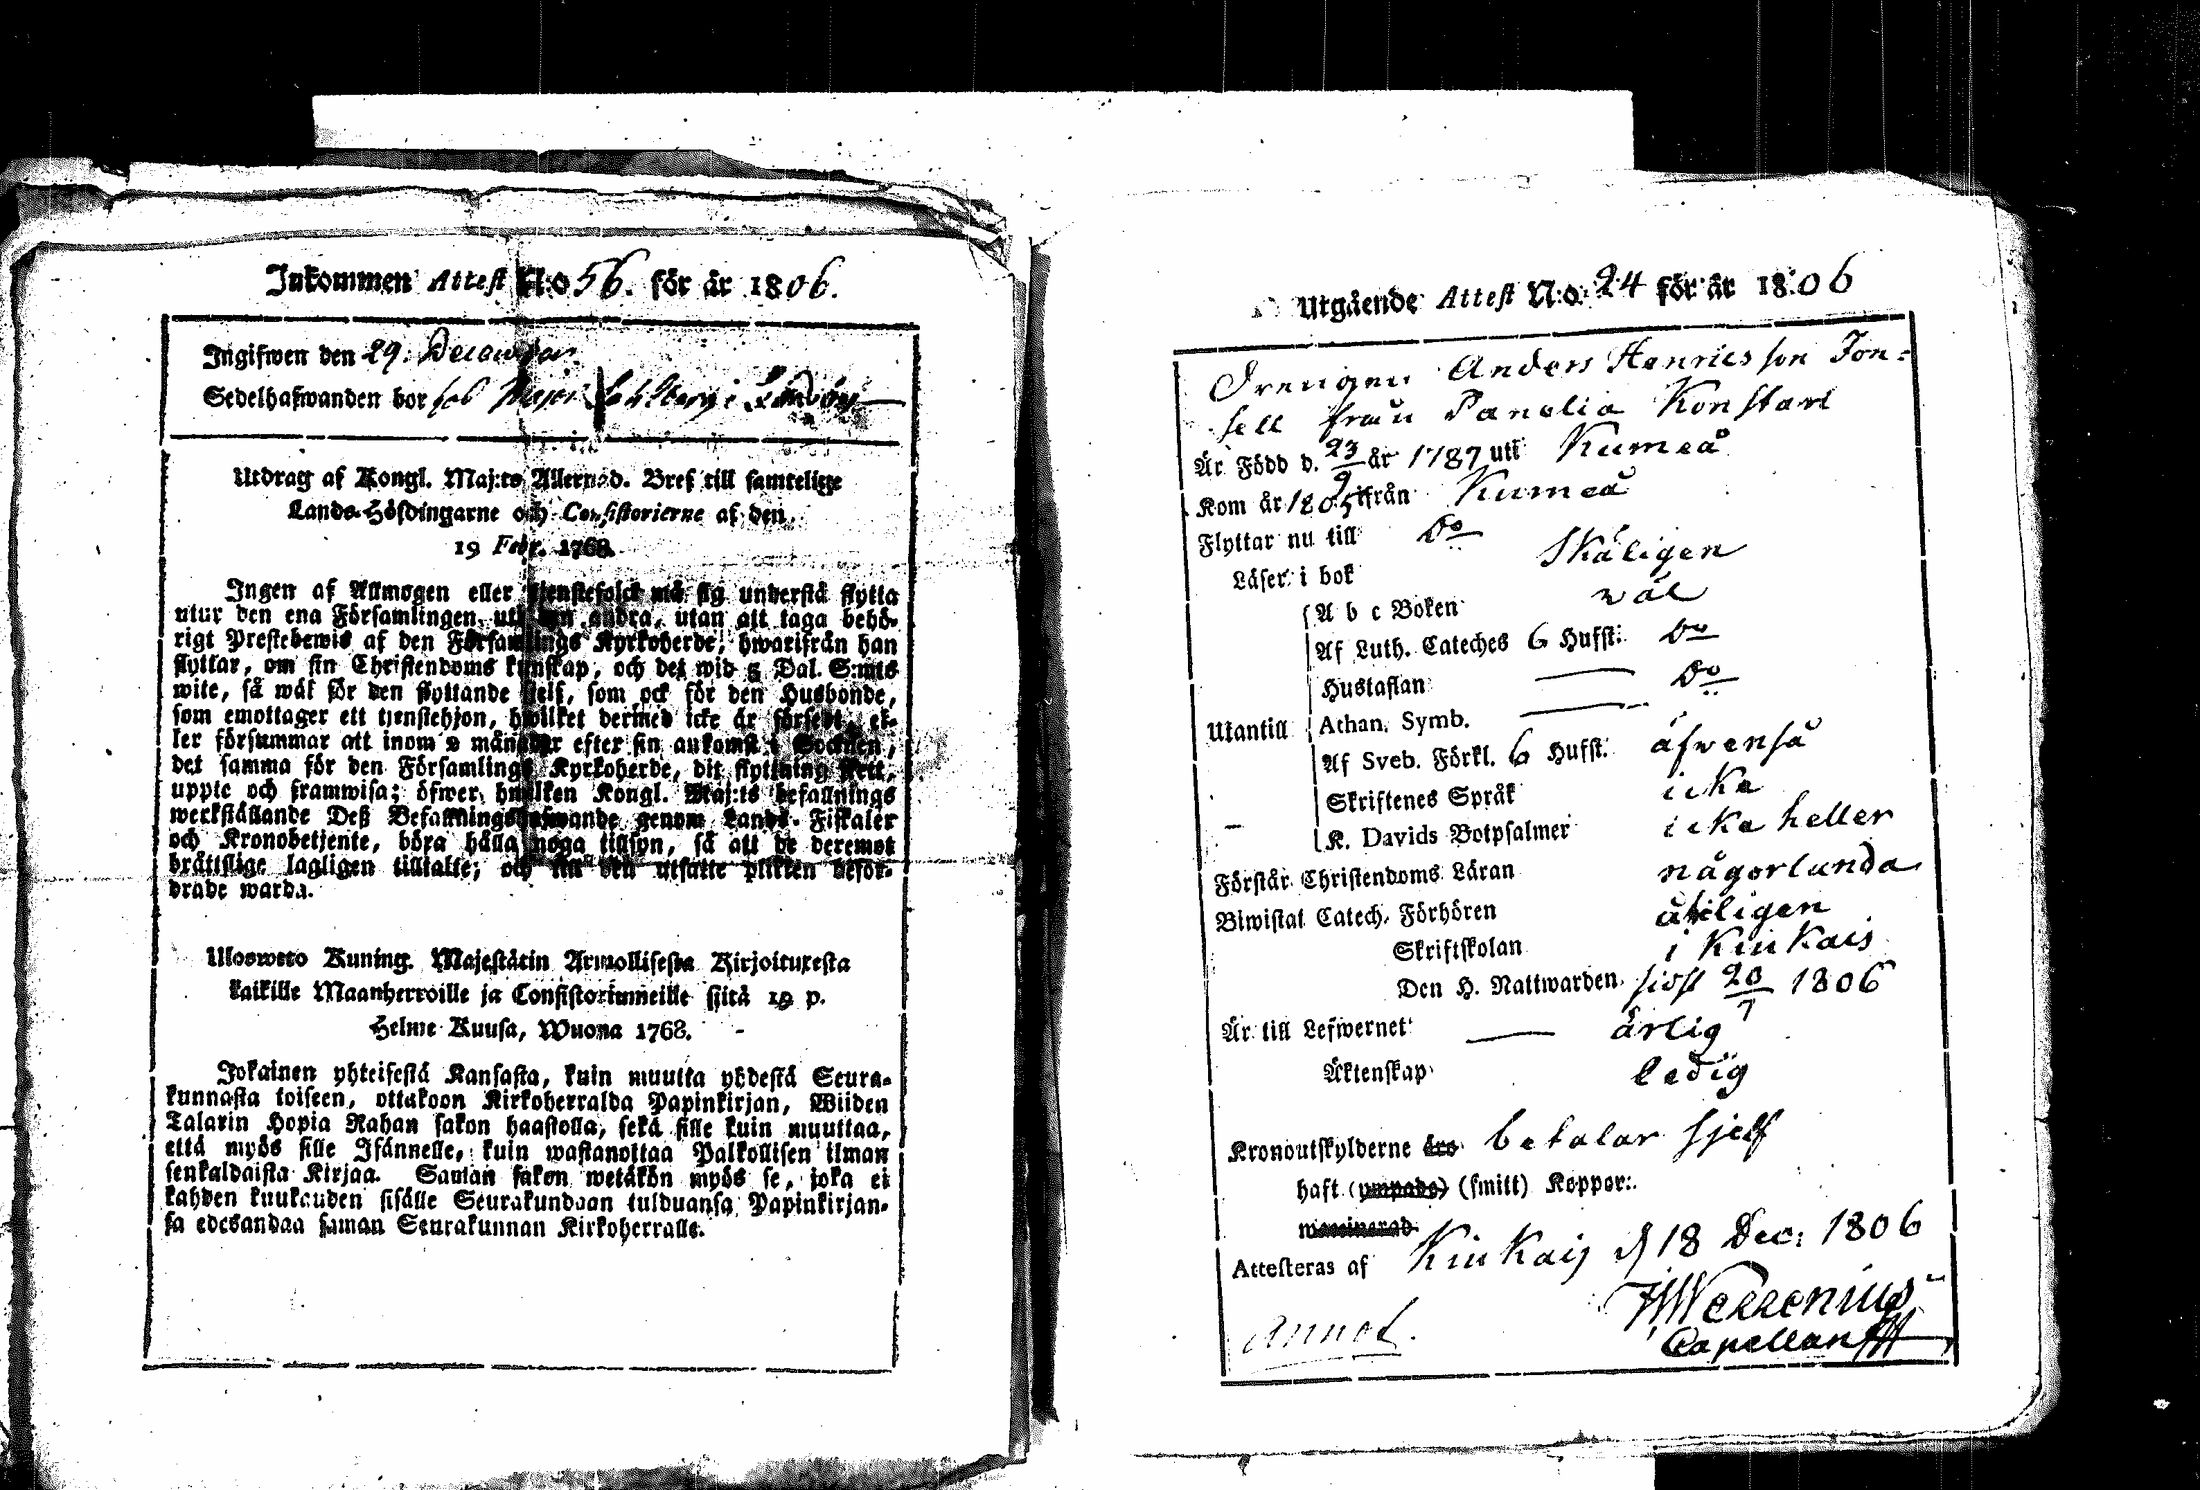 Inkommen Attest N:o 56. för år 1806.
Ingifwen den 29. December
Sedelhafwanden bor hos Major
Utdrag af Kongl. Maj:ts Allernåd. Bref till samtelige
Lands-Höfdingarne och Consistorierne af den
19 Febr. 1768.
Ingen af Allmogen eller tjenstefolck må sig understå flytta
utur den ena Församlingen uti den andra, utan att taga behö-
rigt Prestebewis af den Församlings Kyrkoherde, hwarifrån han
flyttar, om sin Christendoms kunskap, och det wid 5 Dal. S:mts
wite, så wäl för den flyttande sielf, som ock för den Husbonde,
som emottager ett tjenstehjon, hwilket dermed icke är försedt, el-
ler försummar att inom 2 månader efter sin ankomst i Socknen,
det samma för den Församlings Kyrkoherde, dit flyttning skett,
uppte och framwisa; öfwer hwilken Kongl. Maj:ts befallnings
werkställande Deß Befallningshafwande genom Lands-Fiskaler
och Kronobetjente, böra hålla noga tillsyn, så att de deremot
bråttslige lagligen tilltalte; och till den utsatte plikten befor-
drade warda.
Uloswето Kuning. Majestätin Armollisesta Kirjoituxesta
kaikille Maanherroille ja Consistoriumeille siitä 19 p.
Helme-Kuusa, Wuona 1768.
Jokainen yhteisestä Kansasta, kuin muutta yhdestä Seura-
kunnasta toiseen, ottakoon Kirkoherralda Papinkirjan, Wiiden
Talarin Hopia Rahan sakon haastolla, sekä sille kuin muuttaa,
että myös sille Isännelle, kuin wastanottaa Palkollisen ilman
senkaldaista Kirjaa. Saman sakon wetäkön myös se, joka ei
kahden kuukauden sisälle Seurakundaan tulduansa Papinkirjan-
sa edesandaa saman Seurakunnan Kirkoherralle.
Utgående Attest N:o. 24 för år 1806
Drengen Anders Henricsson Jon=
sell från Panelia Konstari
Är Född d. 23/9 år 1787 uti Kumeå
Kom år 1805 ifrån Kumeå
Flyttar nu till Do
Läser i bok Skäligen
A b c Boken wäl
Af Luth. Cateches 6 Hufst: Do
Hustaflan Do
Utantill Athan. Symb.
Af Sveb. Förkl. 6 Hufst: äfwenså
Skriftenes Språk icke
K. Davids Botpsalmer icke heller
Förstår Christendoms Läran någorlunda
Biwistat Catech. Förhören årligen
Skriftskolan i Kiukais
Den H. Nattwarden sidst 20/7 1806
Är till Lefwernet ärlig
Äktenskap ledig
Kronoutskylderne äro betalar sjelf
haft (ympade) (smitt) Koppor:
Attesteras af Kiukais d 18 Dec: 1806
Annot.
Capellan